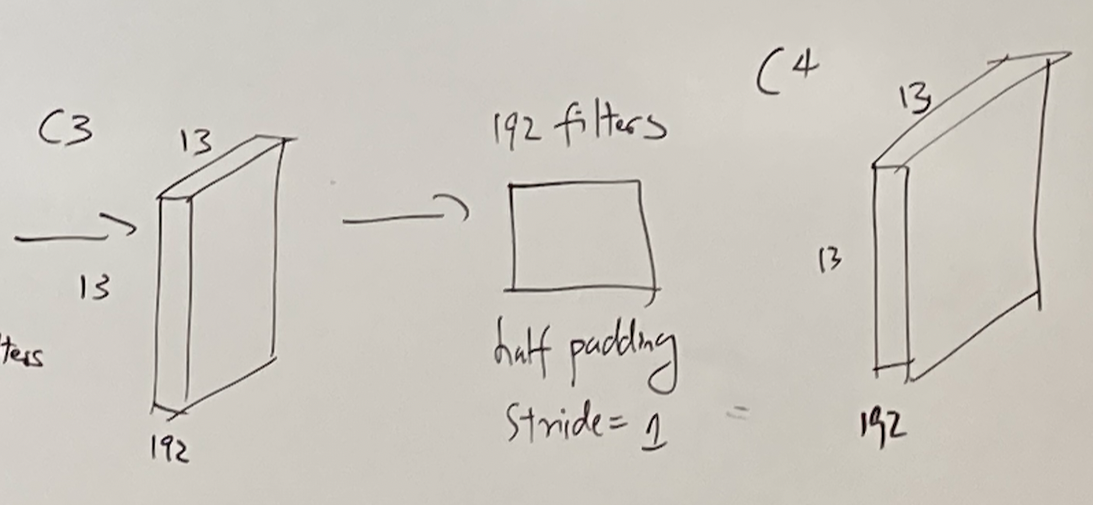 C3
13
13
192
ters
192 filters
half padding
Stride = 1
C4
13
13
192